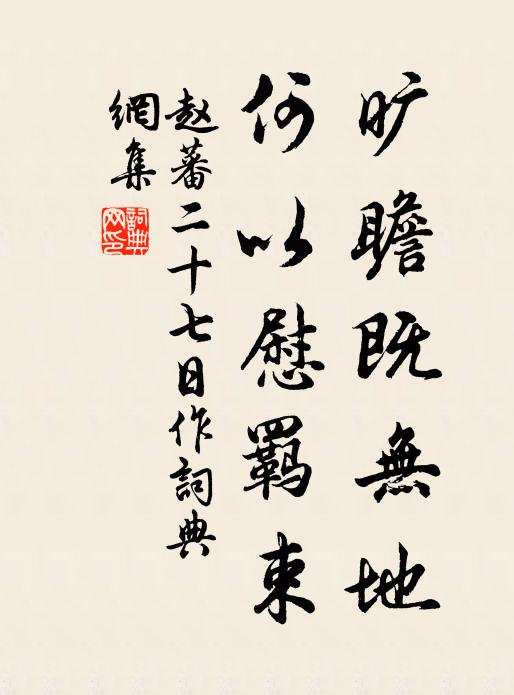 旷瞻既無地
何以慰羁束
赵蕃二十七日作詞典
網集
詞典网印